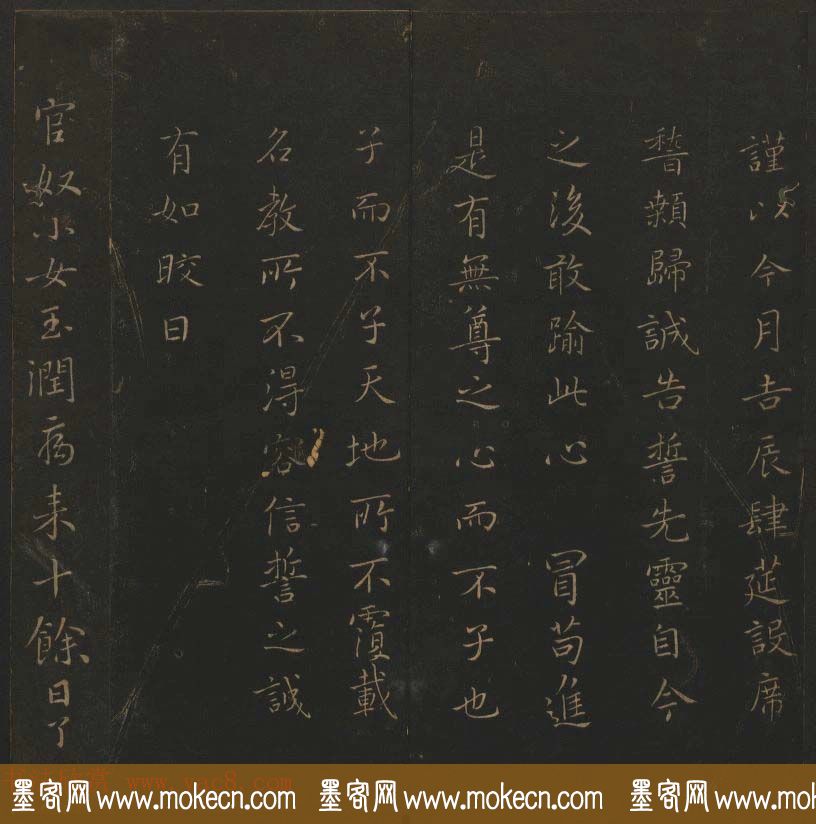 謹以今月吉辰肆莚設席
稽顙歸誠告誓先靈自今
之後敢踰此心 冒苟進
是有無尊之心而不子也
子而不子天地所不覆載
名教所不得容信誓之誠
有如皎日
官奴小女玉潤病来十餘日了
www.yac8.com
墨客网 www.mokecn.com 墨客网 www.mokecn.com 墨客网 www.mokec